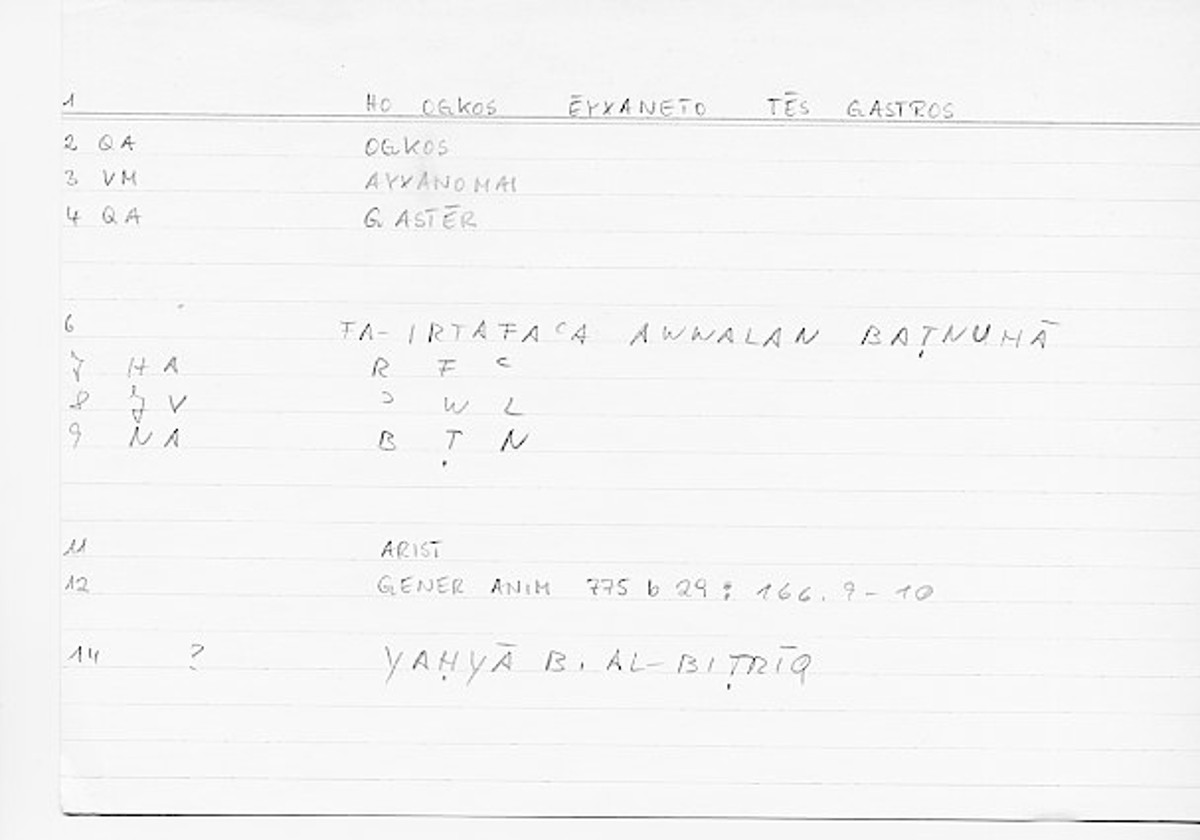 1 HO OGKOS ĒYXANETO TĒS GASTROS
2 QA OGKOS
3 VM AYXANOMAI
4 QA GASTĒR
6 FA-IRTAFAʿA AWWALAN BAṬNUHĀ
7 HA R F ʿ
8 V ʾ W L
9 NA B Ṭ N
11 ARIST
12 GENER ANIM 775 b 29 : 166.9-10
14 ? YAḤYĀ B. AL-BIṬRĪQ